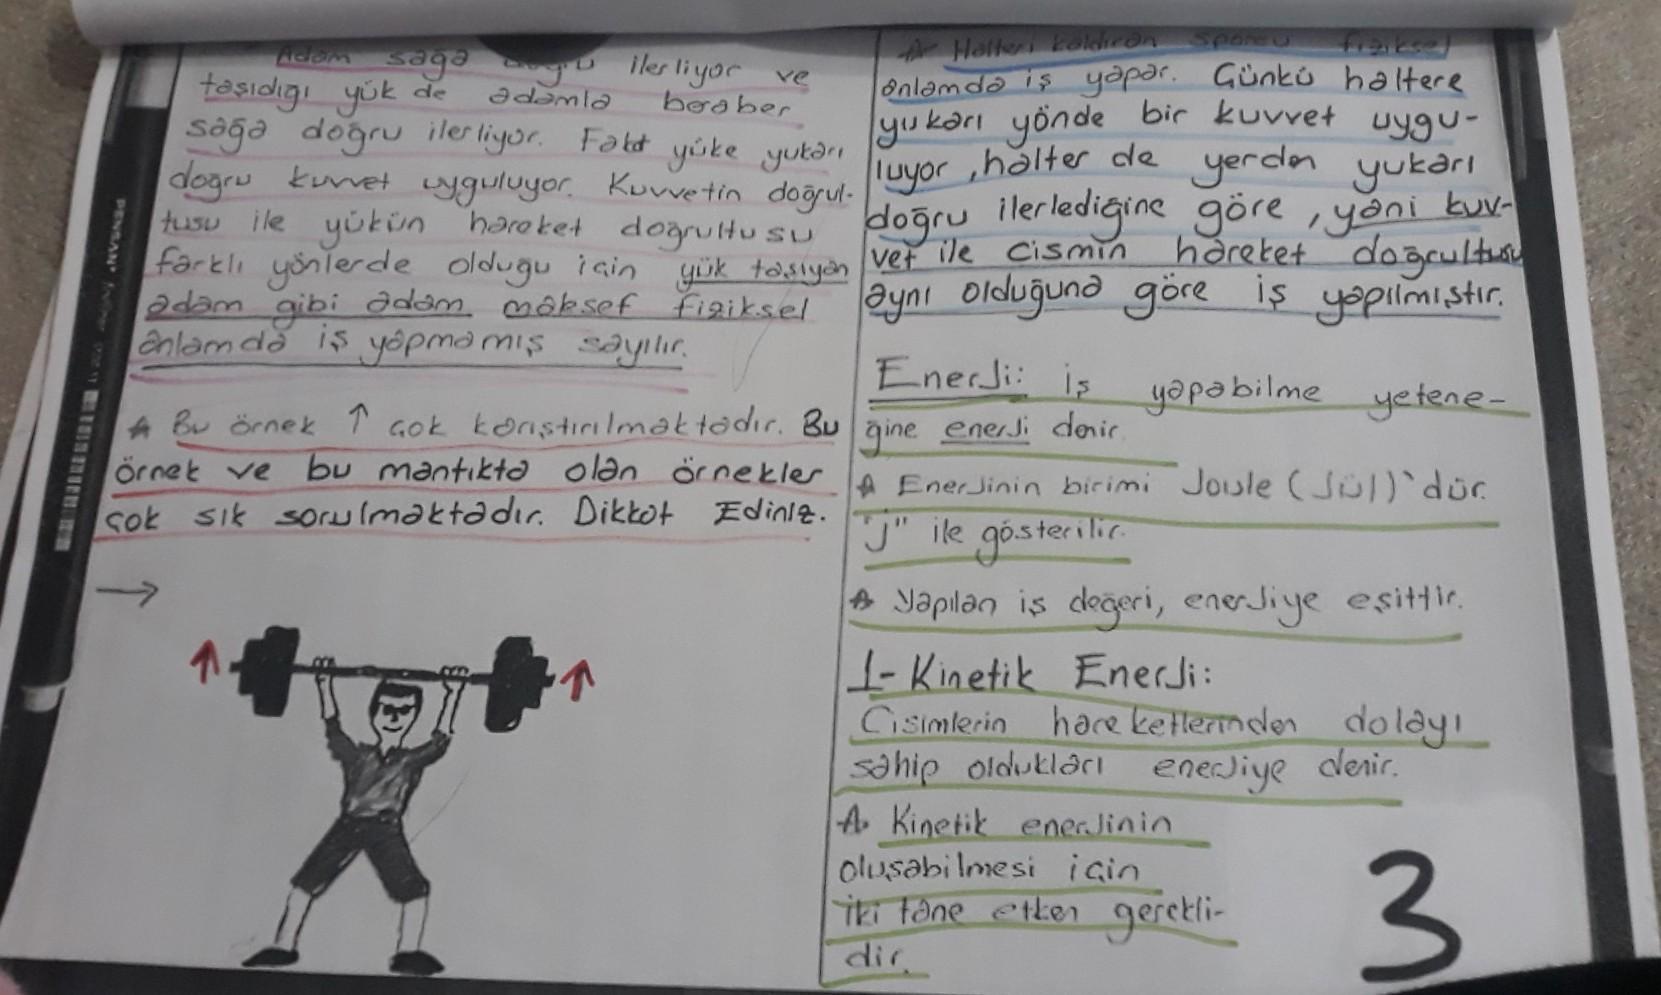 Adam sağa doğru ilerliyor ve
taşıdığı yük de adamla beraber
sağa doğru ilerliyor. Fakat yüke yukarı
doğru kuvvet uyguluyor. Kuvvetin doğrul-
tusu ile yükün hareket doğrultusu
farklı yönlerde olduğu için yük taşıyan
adam gibi adam maksef fiziksel
anlamda iş yapmamış sayılır.
Bu örnek ↑ çok karıştırılmaktadır. Bu
örnek ve bu mantıkta olan örnekler
çok sık sorulmaktadır. Dikkat Ediniz.
→
Halteri kaldıran sporcu fiziksel
anlamda iş yapar. Günkü haltere
yukarı yönde bir kuvvet uygu-
luyor, halter de yerden yukarı
doğru ilerlediğine göre, yani kuv-
vet ile cismin hareket doğrultusu
aynı olduğuna göre iş yapılmıştır.
Enerji: iş yapabilme yetene-
ğine enerji denir.
Enerjinin birimi Joule (Jül)`dür.
"J" ile gösterilir.
Yapılan iş değeri, enerjiye eşittir.
1- Kinetik Enerji:
Cisimlerin hareketlerinden dolayı
sahip oldukları enerjiye denir.
Kinetik enerjinin
oluşabilmesi için
iki tane etken gerekli-
dir.
3
PENSAN